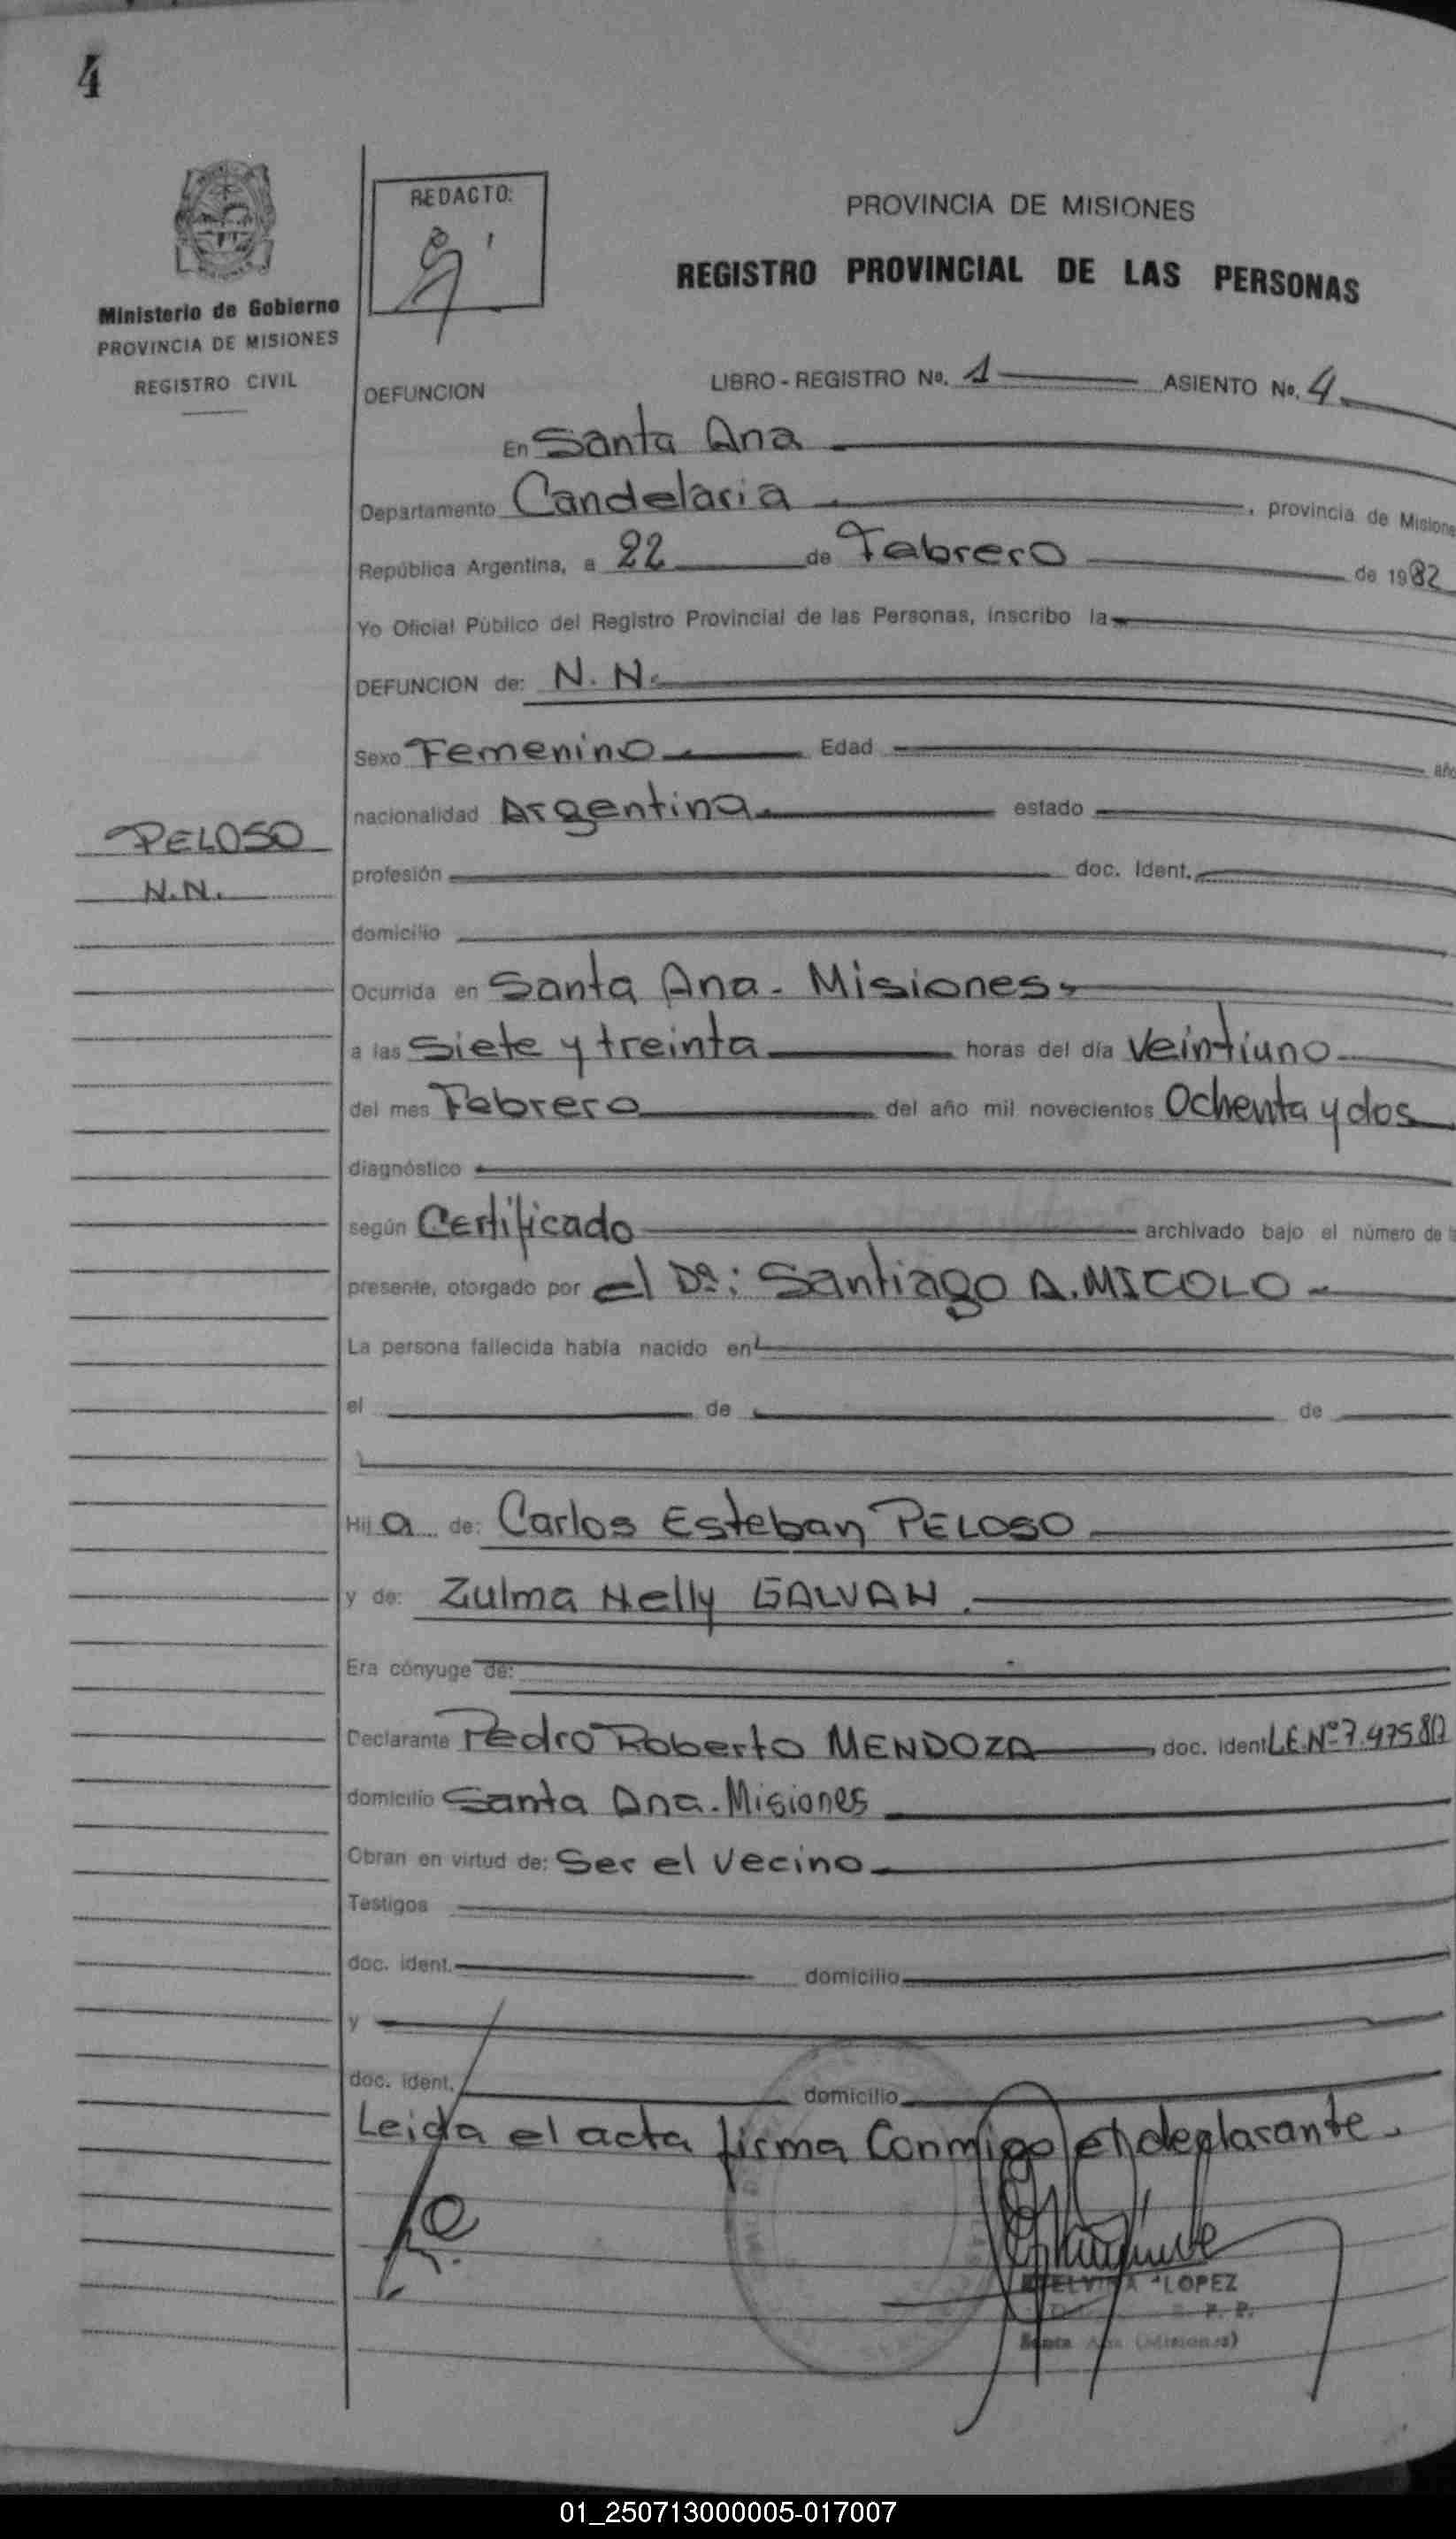 4
REDACTO:
PROVINCIA DE MISIONES
REGISTRO PROVINCIAL DE LAS PERSONAS
Ministerio de Gobierno
PROVINCIA DE MISIONES
REGISTRO CIVIL
DEFUNCION LIBRO - REGISTRO No. 1 ASIENTO No. 4
En Santa Ana
Departamento Candelaria , provincia de Misione
República Argentina, a 22 de Febrero de 1982
Yo Oficial Público del Registro Provincial de las Personas, inscribo la
DEFUNCION de: N. N.
Sexo Femenino Edad año
nacionalidad Argentina. estado
PELOSO
N.N.
profesión doc. Ident.
domicilio
Ocurrida en Santa Ana - Misiones
a las Siete y treinta horas del día Veintiuno
del mes Febrero del año mil novecientos Ochenta y dos
diagnóstico
según Certificado archivado bajo el número de
presente, otorgado por el Dr: Santiago A. MICOLO -
La persona fallecida había nacido en
el de de
Hija de: Carlos Esteban PELOSO
y de: Zulma Nelly GALVAN.
Era cónyuge de:
Declarante Pedro Roberto MENDOZA doc. ident L.E.Nº 7.475
domicilio Santa Ana. Misiones
Obran en virtud de: Ser el Vecino
Testigos
doc. ident. domicilio
y
doc. ident. domicilio
Leida el acta firma Conmigo el declarante.
LOPEZ
Santa Ana (Misiones)
01_250713000005-017007